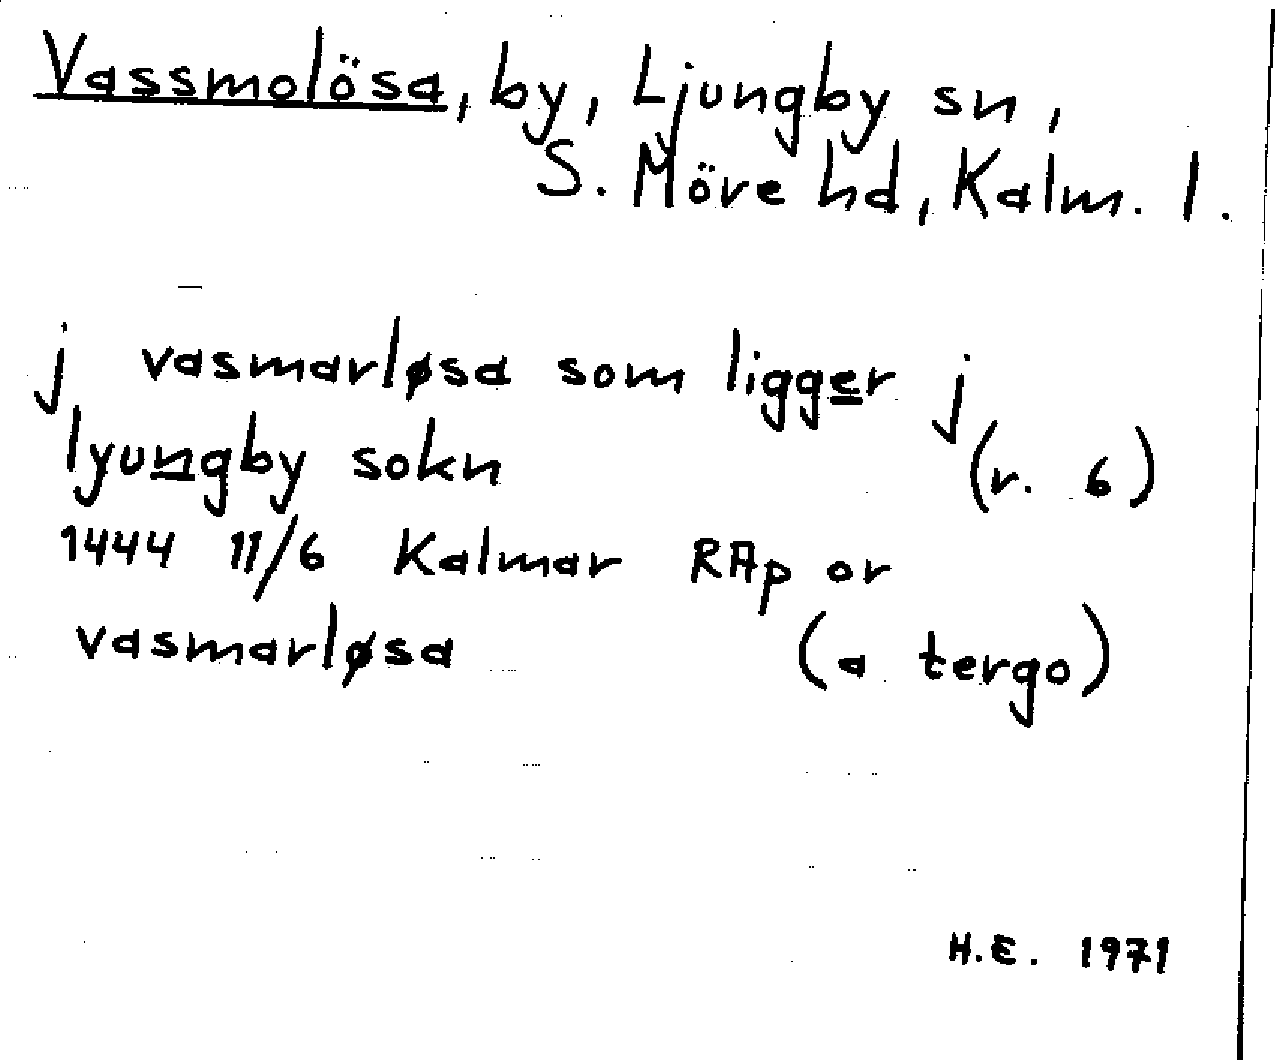 Vassmolösa, by, Ljungby sn,
S. Möre hd, Kalm. l.
j vasmarløsa som ligger j
lyungby sokn (r. 6)
1444 11/6 Kalmar RAp or
vasmarløsa (a tergo)
H.E. 1971